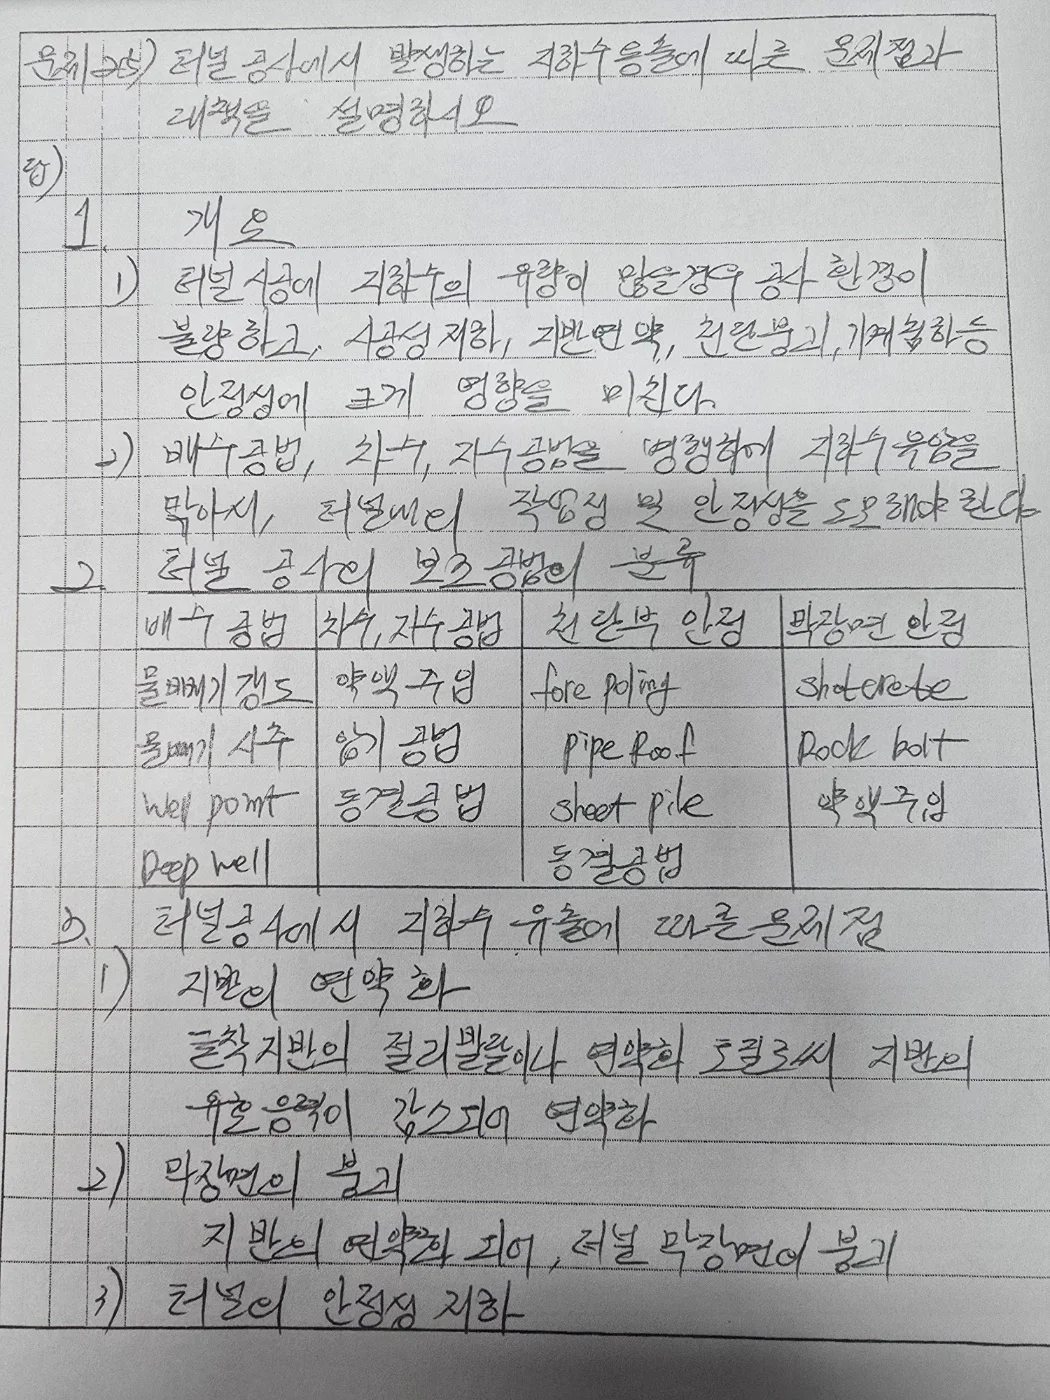 문제 2-5) 터널 공사에서 발생하는 지하수 용출에 따른 문제점과
대책을 설명하시오
답)
1. 개요
1) 터널 시공에 지하수의 유량이 많을경우 공사 환경이
불량하고, 시공성 저하, 지반연약, 천단붕괴, 기계침하등
안정성에 크게 영향을 미친다.
2) 배수공법, 차수, 지수공법을 병행하에 지하수 유입을
막아서, 터널내의 작업정 및 안정성을 도모해야 한다.
2. 터널 공사의 보조공법의 분류
배수공법 차수, 지수공법 천단부 안정 막장면 안정
물빼기갱도 약액주입 fore poling shotcrete
물빼기 시추 압기 공법 pipe Roof Rock bolt
Well point 동결공법 sheet pile 약액주입
Deep well 동결공법
3. 터널공사에서 지하수 유출에 따른 문제점
1) 지반의 연약화
굴착지반의 절리발달이나 연약화 도림로써 지반의
유효응력이 감소되어 연약화
2) 막장면의 붕괴
지반의 연약화 되어, 터널 막장면이 붕괴
3) 터널의 안정성 저하